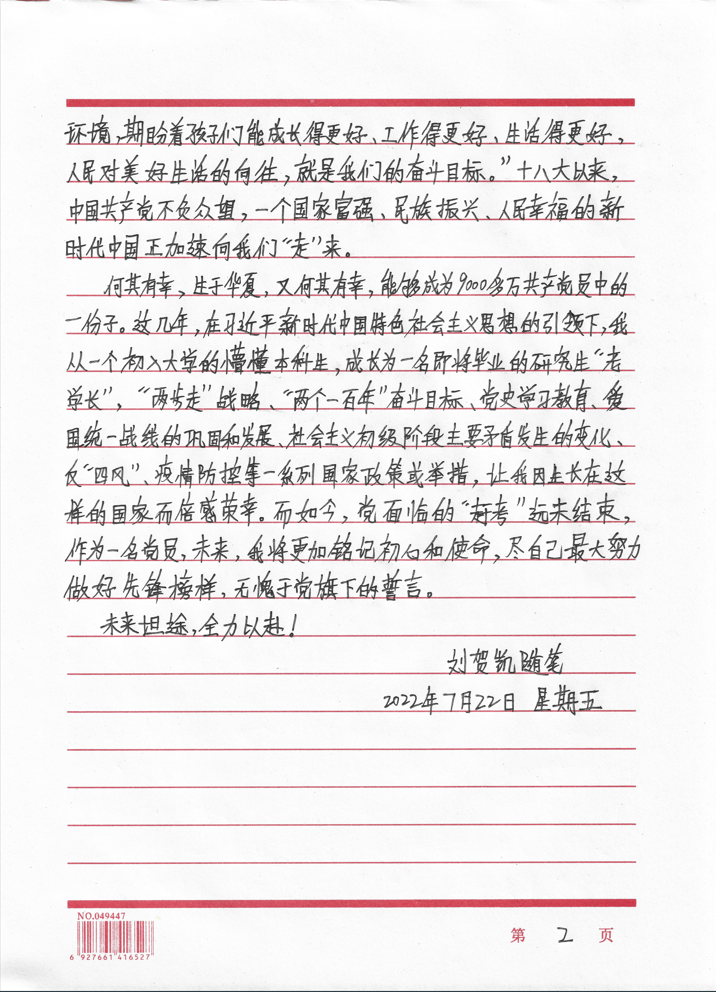 环境，期盼着孩子们能成长得更好、工作得更好、生活得更好，
人民对美好生活的向往，就是我们的奋斗目标。”十八大以来，
中国共产党不负众望，一个国家富强、民族振兴、人民幸福的新
时代中国正加速向我们“走”来。
何其有幸，生于华夏，又何其有幸，能够成为9000多万共产党员中的
一份子。这几年，在习近平新时代中国特色社会主义思想的引领下，我
从一个初入大学的懵懂本科生，成长为一名即将毕业的研究生“老
学长”，“两步走”战略、“两个一百年”奋斗目标、党史学习教育、爱
国统一战线的巩固和发展、社会主义初级阶段主要矛盾发生的变化、
反“四风”、疫情防控等一系列国家政策或举措，让我因生长在这
样的国家而倍感荣幸。而如今，党面临的“赶考”远未结束，
作为一名党员，未来，我将更加铭记初心和使命，尽自己最大努力
做好先锋榜样，无愧于党旗下的誓言。
未来坦途，全力以赴！
刘贺凯随笔
2022年7月22日 星期五
NO.049447
6 927661 416527
第 2 页